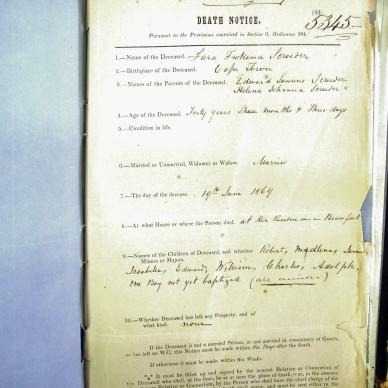 (63)
5345
DEATH NOTICE.
Pursuant to the Provisions contained in Section 9, Ordinance 104,
1.—Name of the Deceased.
2.—Birthplace of the Deceased. Cape Town
3.—Names of the Parents of the Deceased. Edward
Helena Johanna
4.—Age of the Deceased. Forty years three months & three days
5.—Condition in life.
6.—Married or Unmarried, Widower or Widow. Married
7.—The day of the decease. 19th June 1869
8.—At what House or where the Person died. at Her Residence in Beaufort
9.—Names of the Children of Deceased, and whether Robert,
Minors or Majors.
Edward, William, Charles, Adolph,
one Boy not yet baptized (all minors)
10.—Whether Deceased has left any Property, and of
what kind. none
If the Deceased is not a married Person, or not married in community of Goods,
or has left no Will, this Notice must be made within Six Days after the death.
If otherwise it must be made within Six Weeks.
It must be filled up and signed by the nearest Relative or Connection of
the Deceased who shall, at the time, be at or near the place of death,—or, in the absence